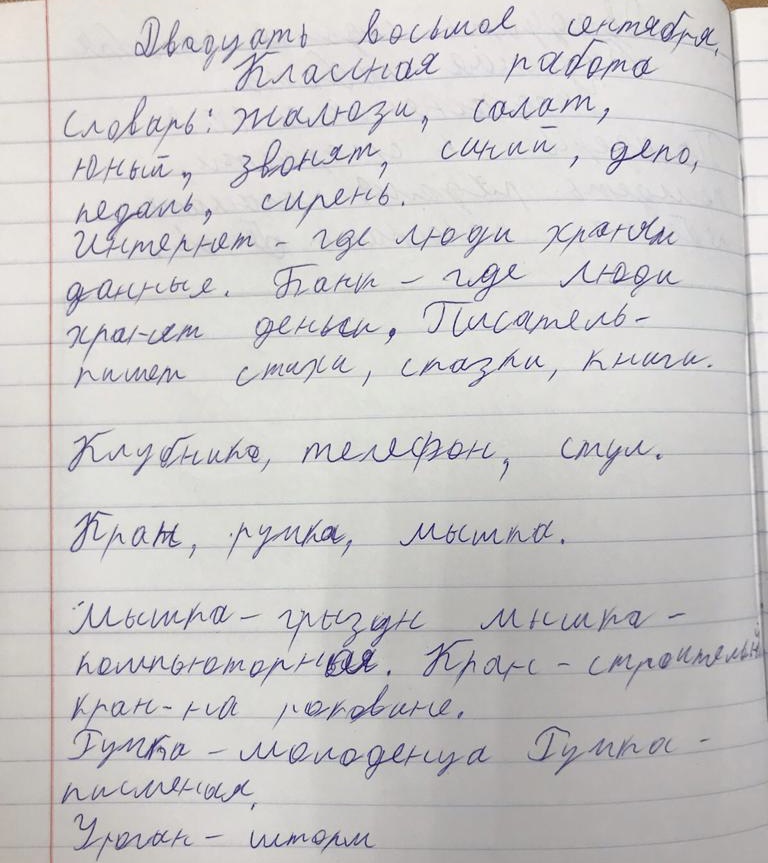 Двадцать восьмое сентября.
Классная работа
Словарь: жалюзи, салат,
юный, звонят, синий, депо,
педаль, сирень.
Интернет - где люди хранят
данные. Банк - где люди
хранят деньги. Писатель-
пишет стихи, сказки, книги.
Клубника, телефон, стул.
Кран, ручка, мышка.
Мышка - грызун мышка -
компьюторная. Кран - строительн
кран - на раковине.
Ручка - молоденца Ручка -
писменая.
Ураган - шторм